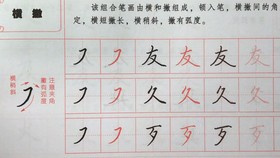 横撇
该组合笔画由横和撇组成，顿入笔，横撇间的角
定，横短撇长，横稍斜，撇有弧度。
横稍斜
注意夹角
撇有弧度
㇇ ㇇ 友 友 友
㇇ ㇇ 久 久 久
㇇ ㇇ 歹 歹 歹